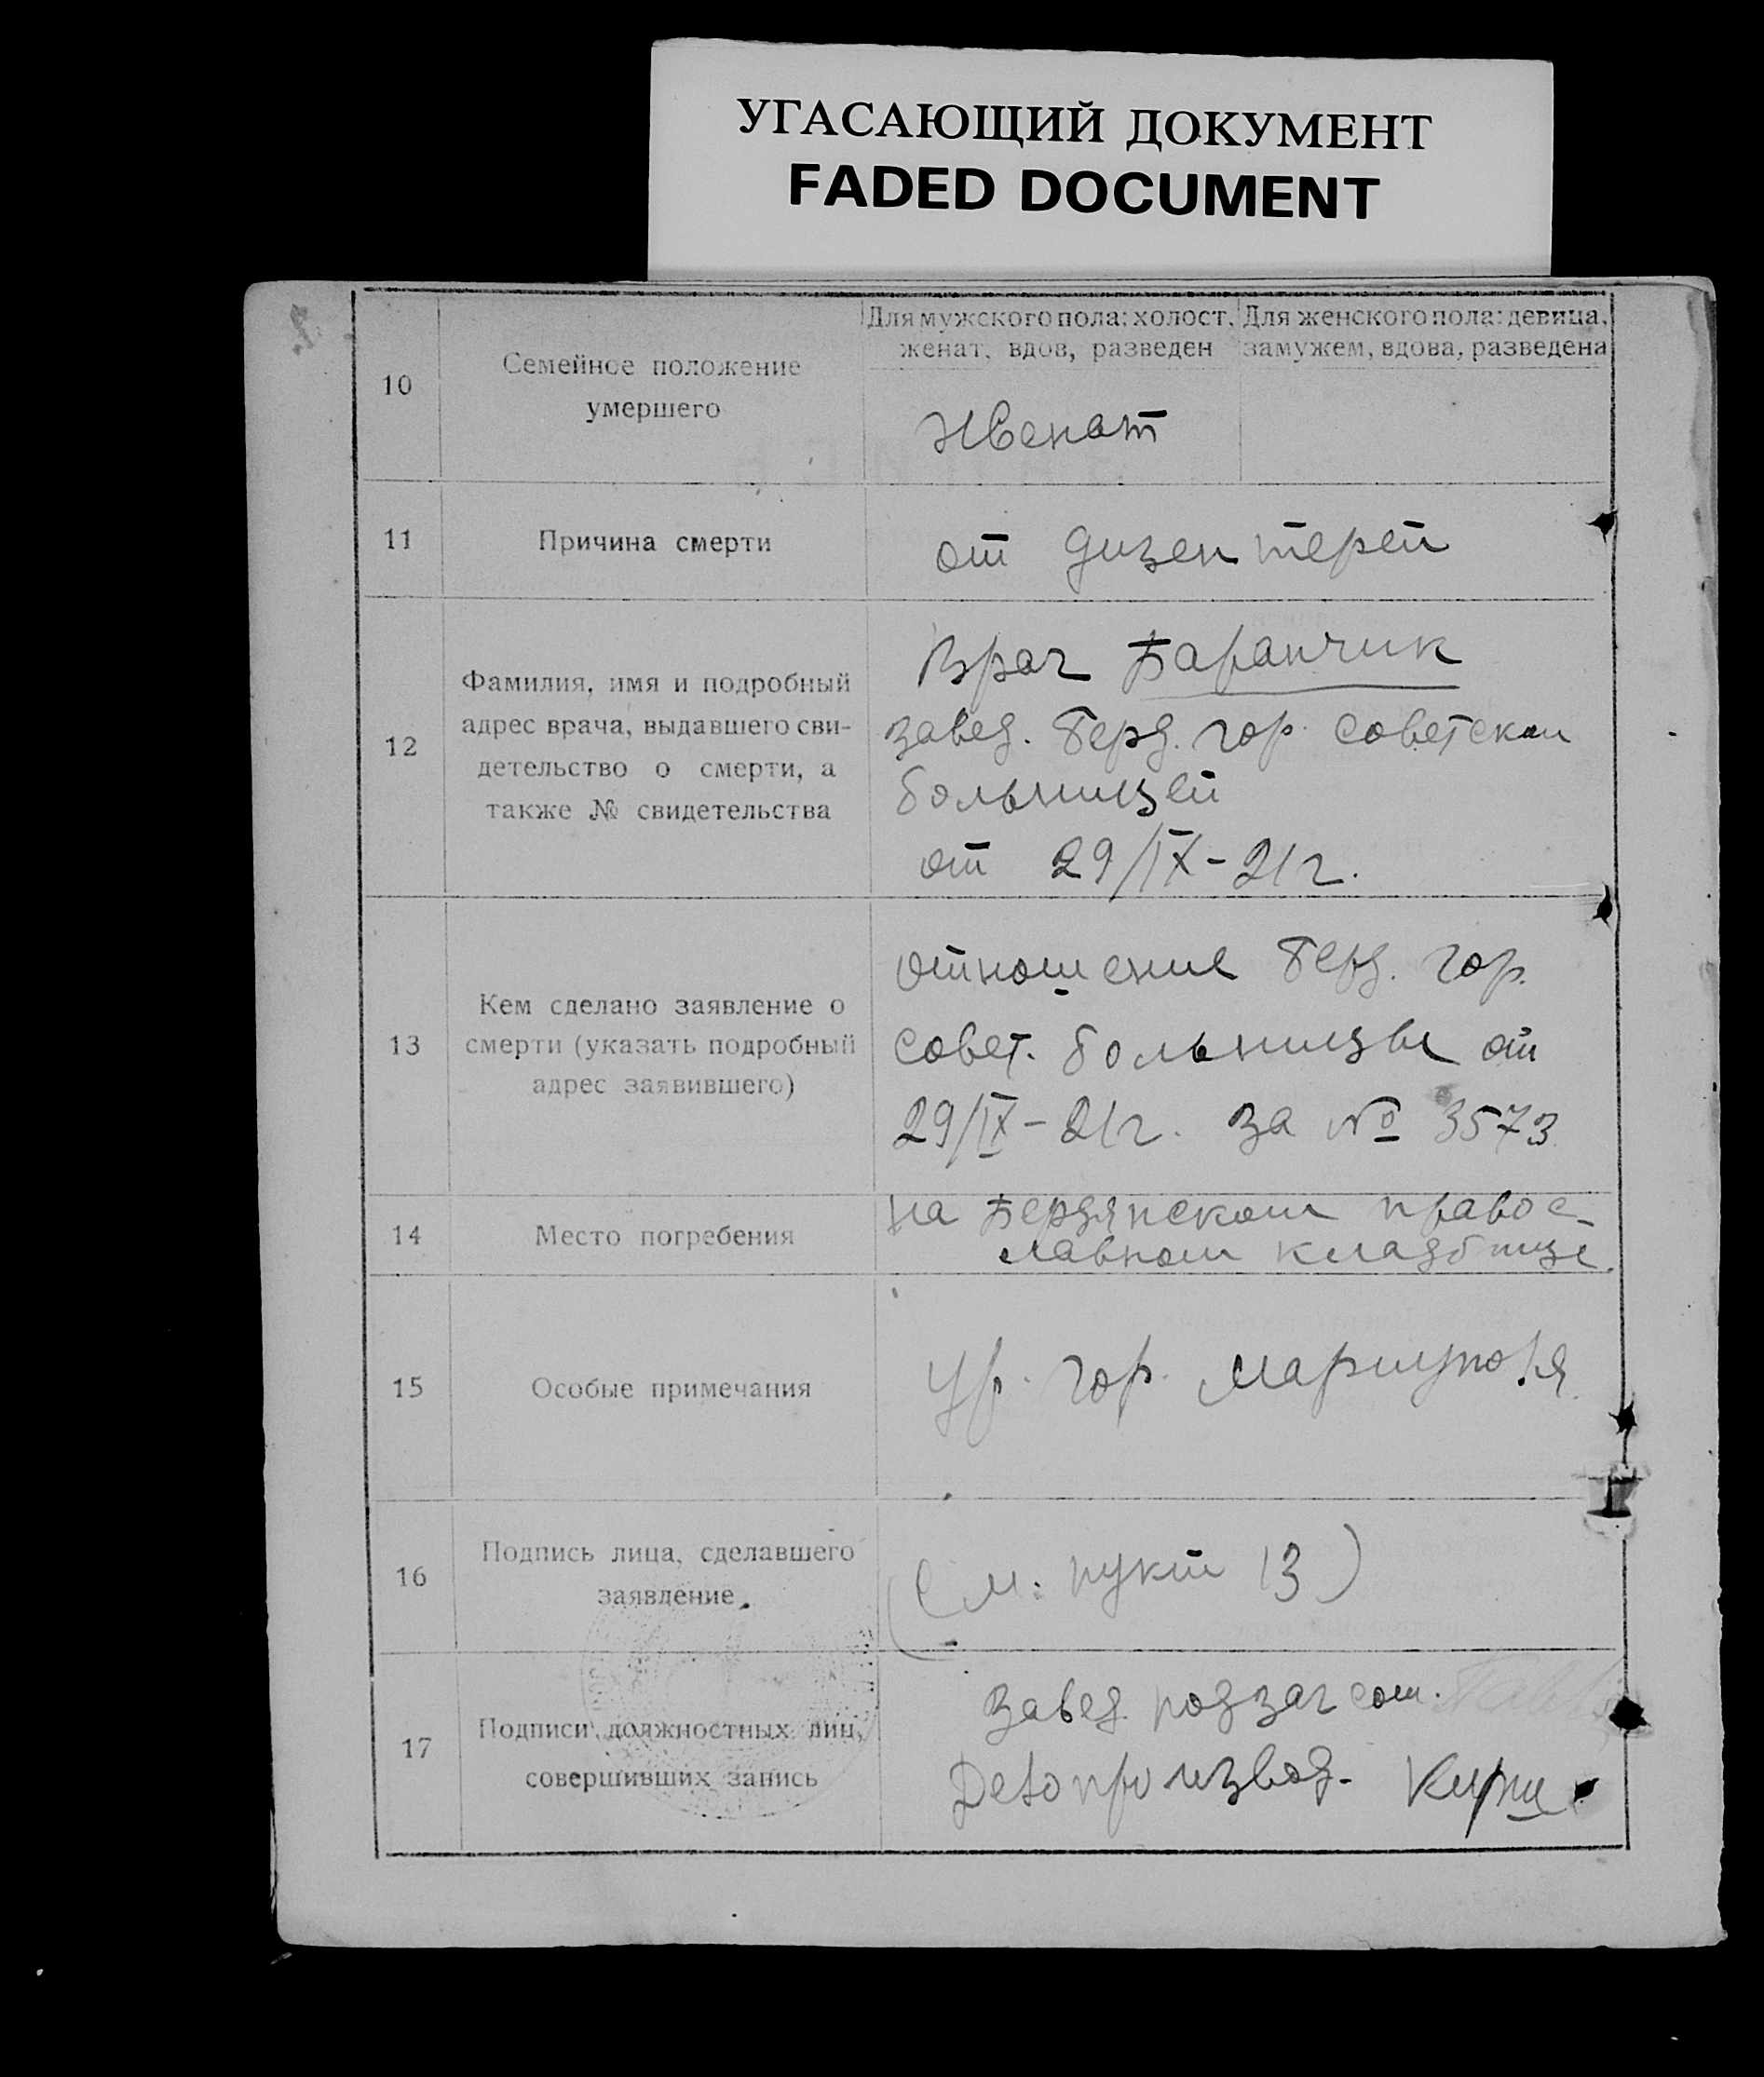 УГАСАЮЩИЙ ДОКУМЕНТ
FADED DOCUMENT
10
Семейное положение
умершего
Для мужского пола: холост,
женат, вдов, разведен
Для женского пола: девица,
замужем, вдова, разведена
Женат
11
Причина смерти
от дизентерей
12
Фамилия, имя и подробный
адрес врача, выдавшего сви-
детельство о смерти, а
также № свидетельства
Врач Баранчик
завед. Берд. гор. советской
больницей
от 29/IX-21г.
13
Кем сделано заявление о
смерти (указать подробный
адрес заявившего)
отношение Берд. гор.
совет. больницы от
29/IX-21г. за № 3573
14
Место погребения
на Бердянском правос-
лавном кладбище.
15
Особые примечания
Ур. гор. Мариуполя.
16
Подпись лица, сделавшего
заявление.
(См. пукт 13)
17
Подписи должностных лиц,
совершивших запись
Завед. подзагсом.
Делопроизвод.